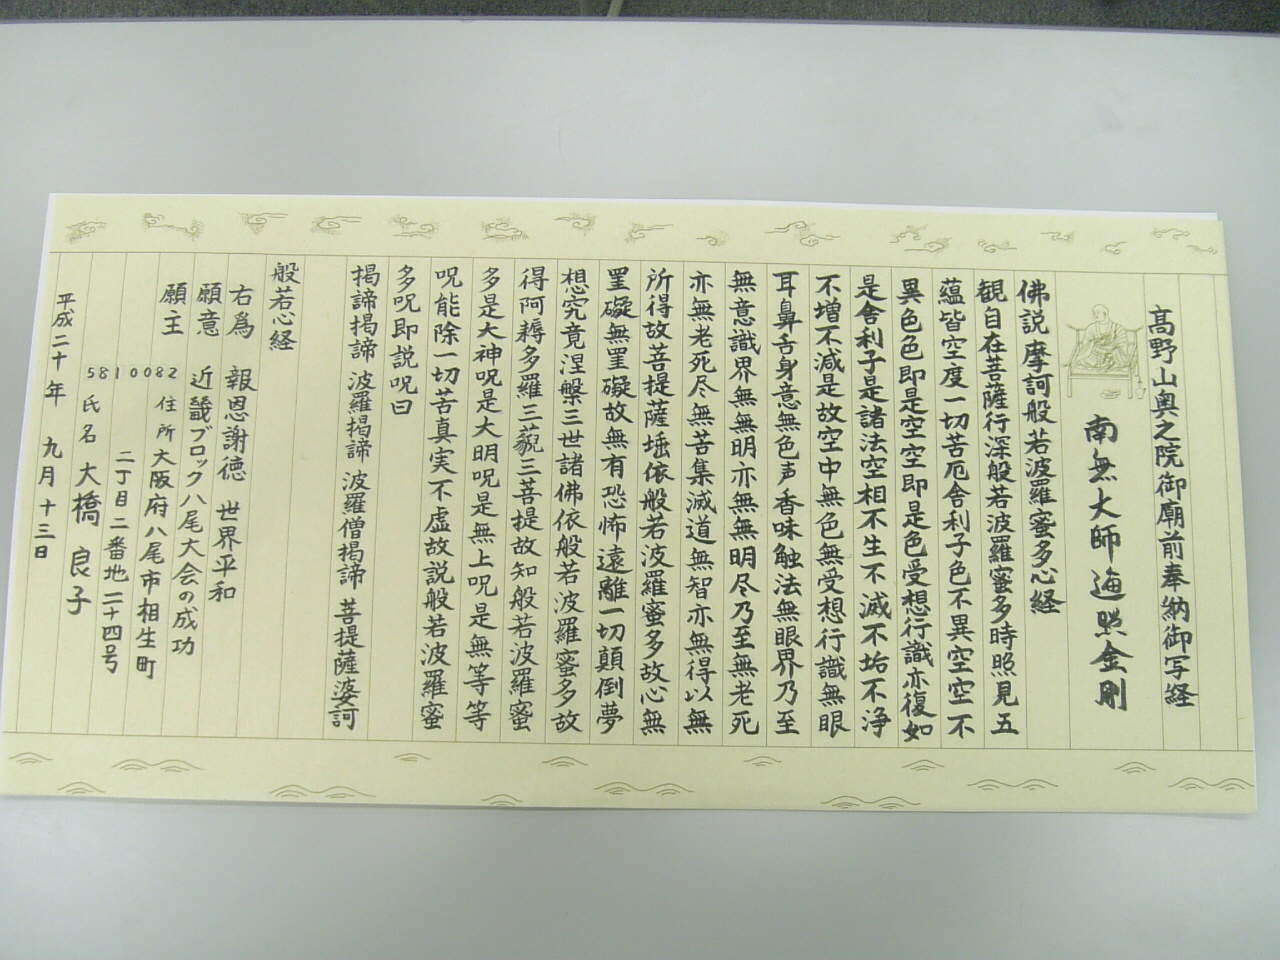 高野山奥之院御廟前奉納御写経
南無大師遍照金剛
佛説摩訶般若波羅蜜多心経
観自在菩薩行深般若波羅蜜多時照見五
蘊皆空度一切苦厄舎利子色不異空空不
異色色即是空空即是色受想行識亦復如
是舎利子是諸法空相不生不滅不垢不浄
不増不減是故空中無色無受想行識無眼
耳鼻舌身意無色声香味触法無眼界乃至
無意識界無無明亦無無明尽乃至無老死
亦無老死尽無苦集滅道無智亦無得以無
所得故菩提薩埵依般若波羅蜜多故心無
罣礙無罣礙故無有恐怖遠離一切顛倒夢
想究竟涅槃三世諸佛依般若波羅蜜多故
得阿耨多羅三藐三菩提故知般若波羅蜜
多是大神呪是大明呪是無上呪是無等等
呪能除一切苦真実不虚故説般若波羅蜜
多呪即説呪曰
掲諦掲諦 波羅掲諦 波羅僧掲諦 菩提薩婆訶
般若心経
右為 報恩謝徳 世界平和
願意 近畿ブロック八尾大会の成功
願主 5810082 住所 大阪府八尾市相生町
二丁目二番地二十四号
氏名 大橋 良子
平成二十年 九月十三日